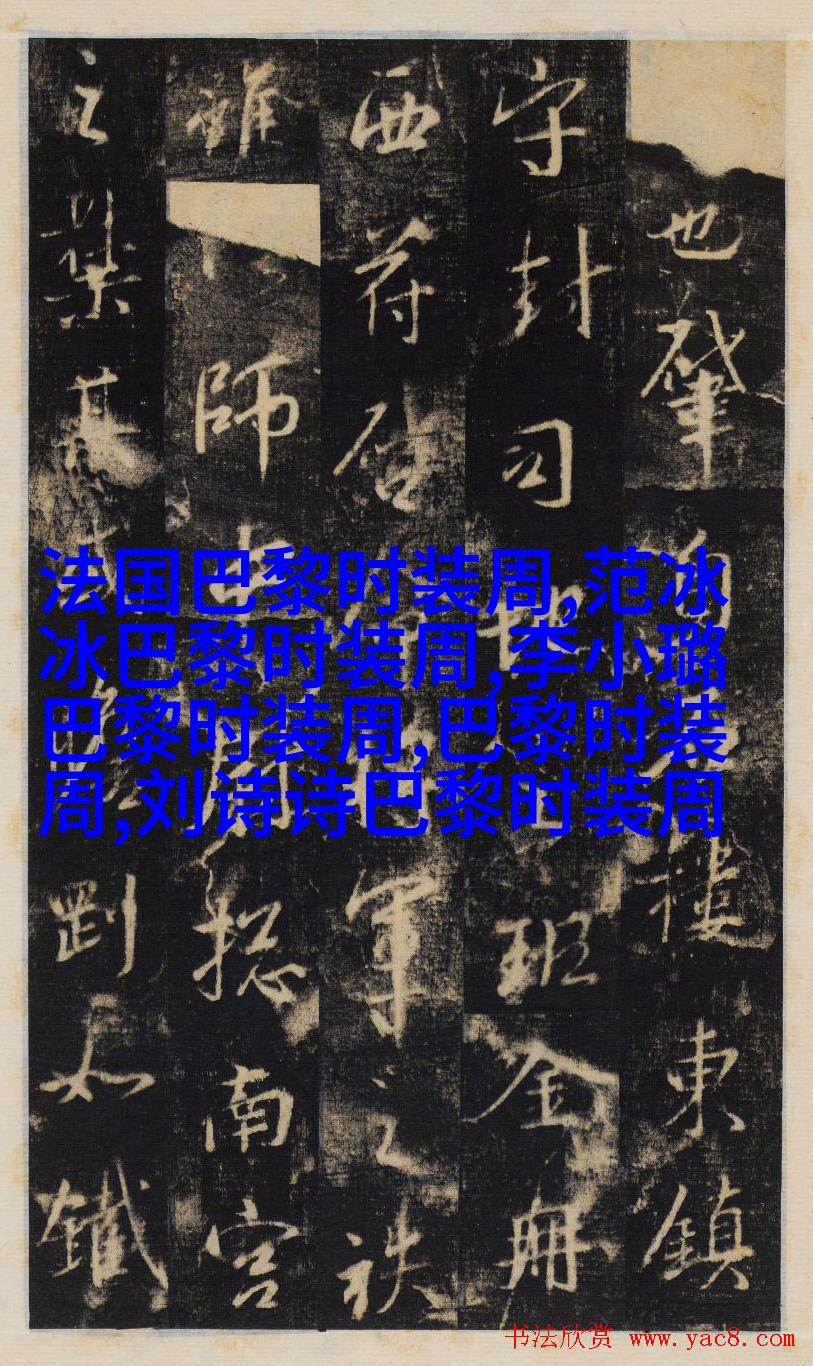 也肇樓東鎮
守封司班金冊
西符启軍之袟
雖師揔南宫
之集其剛如鐵
法国巴黎时装周,范冰
冰巴黎时装周,李小璐
巴黎时装周,巴黎时装
周,刘诗诗巴黎时装周
书法欣赏 www.yac8.com